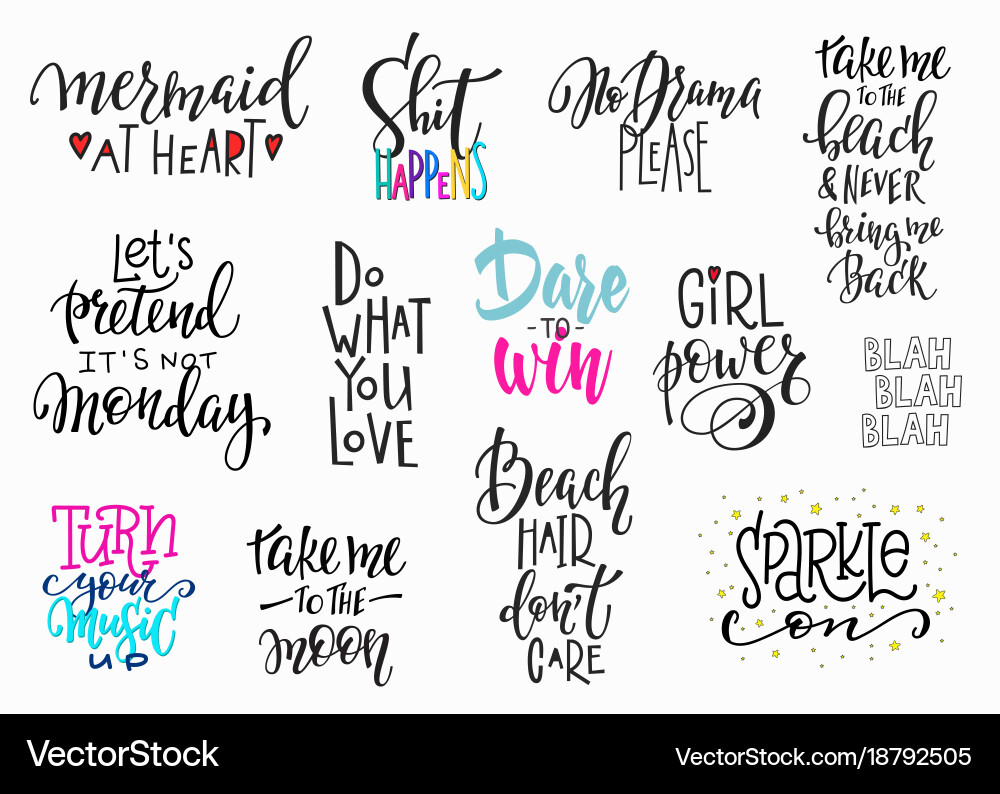 mermaid
AT HEART
Shit
HAPPENS
No Drama
PLEASE
take me
TO THE
beach
& NEVER
bring me
Back
Let's
pretend
IT'S NOT
Monday
Do
WHAT
YOU
LOVE
Dare
- TO -
win
GiRL
power
BLAH
BLAH
BLAH
TURN
your
music
UP
take me
— TO THE —
moon
Beach
HAIR
don't
CARE
SPARKLE
on
VectorStock
VectorStock.com/18792505